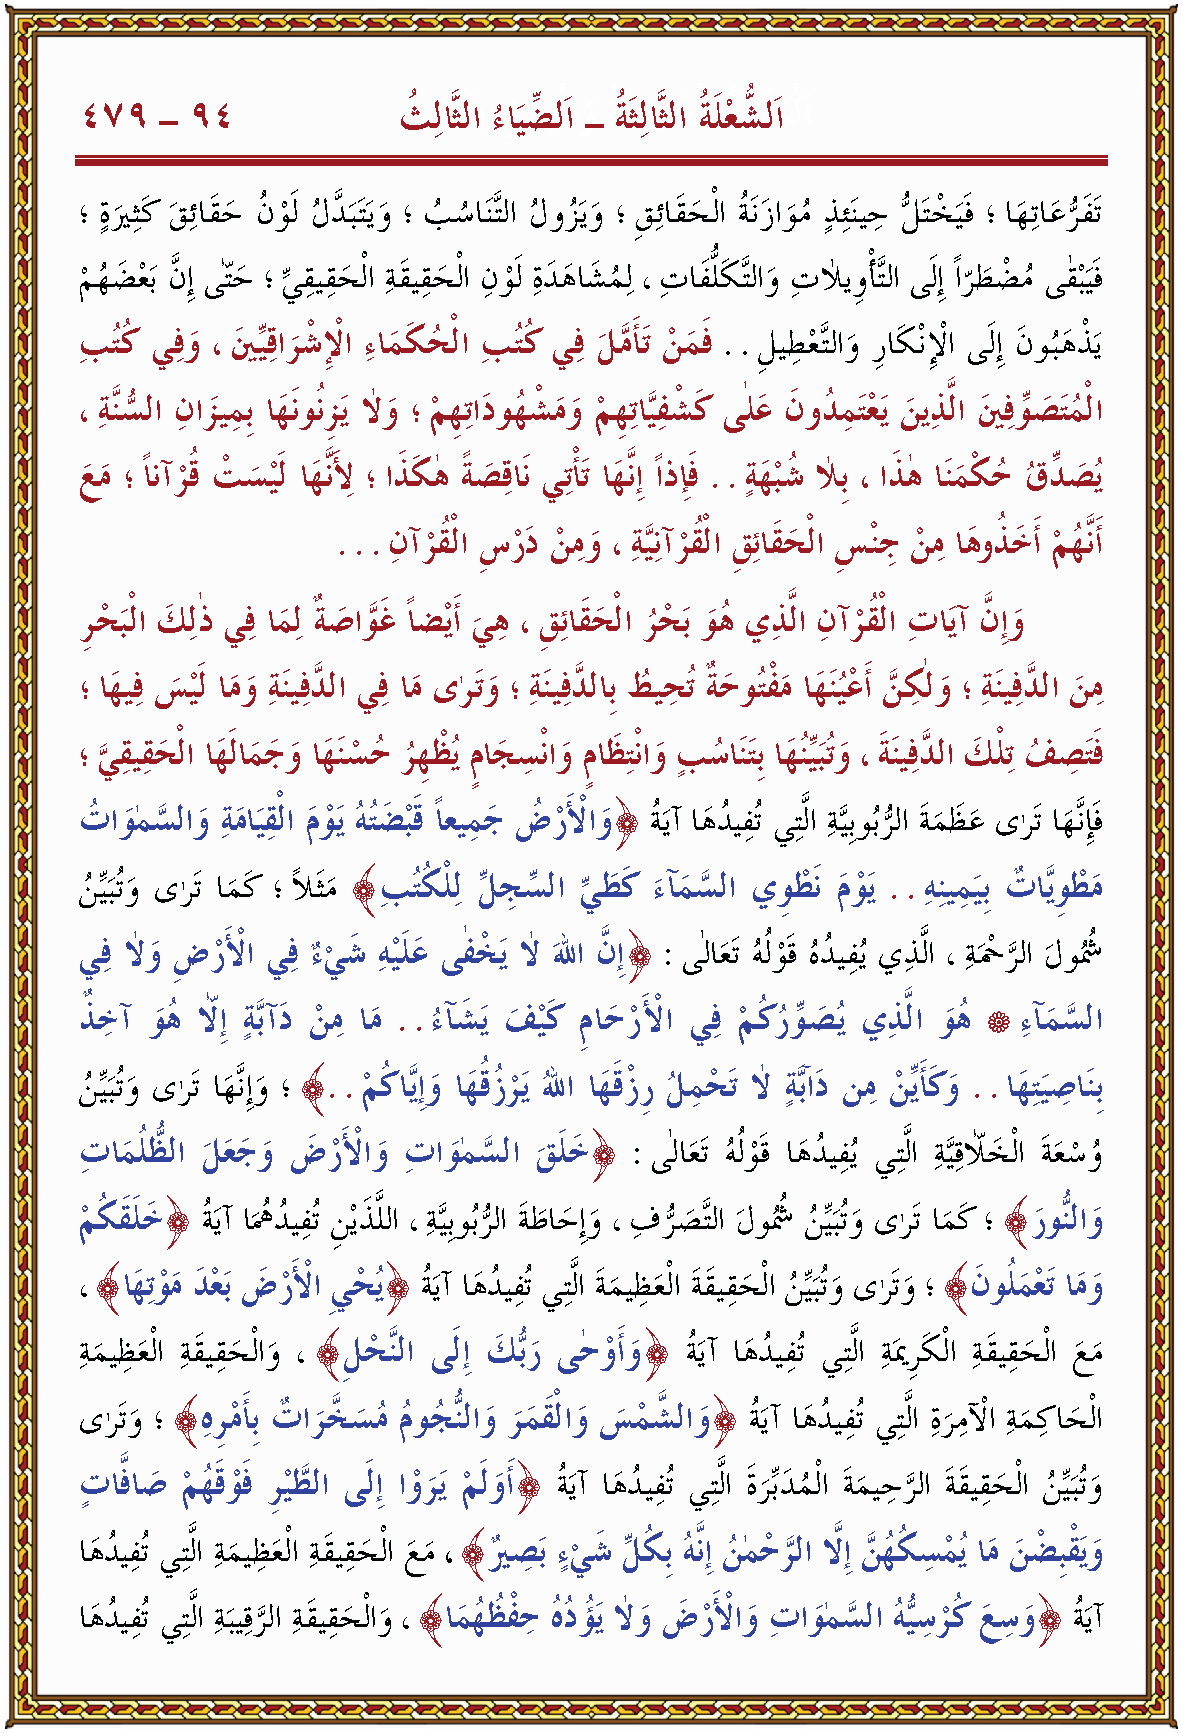 اَلشُّعْلَةُ الثَّالِثَةُ ـ اَلضِّيَاءُ الثَّالِثُ ٩٤ ـ ٤٧٩
تَفَرُّعَاتِهَا ؛ فَيَخْتَلُّ حِينَئِذٍ مُوَازَنَةُ الْحَقَائِقِ ؛ وَيَزُولُ التَّنَاسُبُ ؛ وَيَتَبَدَّلُ لَوْنُ حَقَائِقَ كَثِيرَةٍ ؛
فَيَبْقٰى مُضْطَرّاً إِلَى التَّأْوِيلاٰتِ وَالتَّكَلُّفَاتِ ، لِمُشَاهَدَةِ لَوْنِ الْحَقِيقَةِ الْحَقِيقِيِّ ؛ حَتّٰى إِنَّ بَعْضَهُمْ
يَذْهَبُونَ إِلَى الْإِنْكَارِ وَالتَّعْطِيلِ . . فَمَنْ تَأَمَّلَ فِي كُتُبِ الْحُكَمَاءِ الْإِشْرَاقِيِّينَ ، وَفِي كُتُبِ
الْمُتَصَوِّفِينَ الَّذِينَ يَعْتَمِدُونَ عَلٰى كَشْفِيَّاتِهِمْ وَمَشْهُودَاتِهِمْ ؛ وَلاٰ يَزِنُونَهَا بِمِيزَانِ السُّنَّةِ ،
يُصَدِّقُ حُكْمَنَا هٰذَا ، بِلاٰ شُبْهَةٍ . . فَإِذاً إِنَّهَا تَأْتِي نَاقِصَةً هٰكَذَا ؛ لِأَنَّهَا لَيْسَتْ قُرْآناً ؛ مَعَ
أَنَّهُمْ أَخَذُوهَا مِنْ جِنْسِ الْحَقَائِقِ الْقُرْآنِيَّةِ ، وَمِنْ دَرْسِ الْقُرْآنِ . . .
وَإِنَّ آيَاتِ الْقُرْآنِ الَّذِي هُوَ بَحْرُ الْحَقَائِقِ ، هِيَ أَيْضاً غَوَّاصَةٌ لِمَا فِي ذٰلِكَ الْبَحْرِ
مِنَ الدَّفِينَةِ ؛ وَلٰكِنَّ أَعْيُنَهَا مَفْتُوحَةٌ تُحِيطُ بِالدَّفِينَةِ ؛ وَتَرٰى مَا فِي الدَّفِينَةِ وَمَا لَيْسَ فِيهَا ؛
فَتَصِفُ تِلْكَ الدَّفِينَةَ ، وَتُبَيِّنُهَا بِتَنَاسُبٍ وَانْتِظَامٍ وَانْسِجَامٍ يُظْهِرُ حُسْنَهَا وَجَمَالَهَا الْحَقِيقِيَّ ؛
فَإِنَّهَا تَرٰى عَظَمَةَ الرُّبُوبِيَّةِ الَّتِي تُفِيدُهَا آيَةُ ﴿وَالْأَرْضُ جَمِيعاً قَبْضَتُهُ يَوْمَ الْقِيَامَةِ وَالسَّمٰوَاتُ
مَطْوِيَّاتٌ بِيَمِينِهِ . . يَوْمَ نَطْوِي السَّمَآءَ كَطَيِّ السِّجِلِّ لِلْكُتُبِ﴾ مَثَلاً ؛ كَمَا تَرٰى وَتُبَيِّنُ
شُمُولَ الرَّحْمَةِ ، الَّذِي يُفِيدُهُ قَوْلُهُ تَعَالٰى : ﴿إِنَّ اللهَ لاٰ يَخْفٰى عَلَيْهِ شَيْءٌ فِي الْأَرْضِ وَلاٰ فِي
السَّمَآءِ ۞ هُوَ الَّذِي يُصَوِّرُكُمْ فِي الْأَرْحَامِ كَيْفَ يَشَآءُ . . مَا مِنْ دَآبَّةٍ إِلاّٰ هُوَ آخِذٌ
بِنَاصِيَتِهَا . . وَكَأَيِّنْ مِن دَآبَّةٍ لاٰ تَحْمِلُ رِزْقَهَا اللهُ يَرْزُقُهَا وَإِيَّاكُمْ . .﴾ ؛ وَإِنَّهَا تَرٰى وَتُبَيِّنُ
وُسْعَةَ الْخَلاّٰقِيَّةِ الَّتِي يُفِيدُهَا قَوْلُهُ تَعَالٰى : ﴿خَلَقَ السَّمٰوَاتِ وَالْأَرْضَ وَجَعَلَ الظُّلُمَاتِ
وَالنُّورَ﴾ ؛ كَمَا تَرٰى وَتُبَيِّنُ شُمُولَ التَّصَرُّفِ ، وَإِحَاطَةَ الرُّبُوبِيَّةِ ، اللَّذَيْنِ تُفِيدُهُمَا آيَةُ ﴿خَلَقَكُمْ
وَمَا تَعْمَلُونَ﴾ ؛ وَتَرٰى وَتُبَيِّنُ الْحَقِيقَةَ الْعَظِيمَةَ الَّتِي تُفِيدُهَا آيَةُ ﴿يُحْيِي الْأَرْضَ بَعْدَ مَوْتِهَا﴾ ،
مَعَ الْحَقِيقَةِ الْكَرِيمَةِ الَّتِي تُفِيدُهَا آيَةُ ﴿وَأَوْحٰى رَبُّكَ إِلَى النَّحْلِ﴾ ، وَالْحَقِيقَةِ الْعَظِيمَةِ
الْحَاكِمَةِ الْآمِرَةِ الَّتِي تُفِيدُهَا آيَةُ ﴿وَالشَّمْسَ وَالْقَمَرَ وَالنُّجُومُ مُسَخَّرَاتٌ بِأَمْرِهِ﴾ ؛ وَتَرٰى
وَتُبَيِّنُ الْحَقِيقَةَ الرَّحِيمَةَ الْمُدَبِّرَةَ الَّتِي تُفِيدُهَا آيَةُ ﴿أَوَلَمْ يَرَوْا إِلَى الطَّيْرِ فَوْقَهُمْ صَافَّاتٍ
وَيَقْبِضْنَ مَا يُمْسِكُهُنَّ إِلاَّ الرَّحْمٰنُ إِنَّهُ بِكُلِّ شَيْءٍ بَصِيرٌ﴾ ، مَعَ الْحَقِيقَةِ الْعَظِيمَةِ الَّتِي تُفِيدُهَا
آيَةُ ﴿وَسِعَ كُرْسِيُّهُ السَّمٰوَاتِ وَالْأَرْضَ وَلاٰ يَؤُدُهُ حِفْظُهُمَا﴾ ، وَالْحَقِيقَةِ الرَّقِيبَةِ الَّتِي تُفِيدُهَا